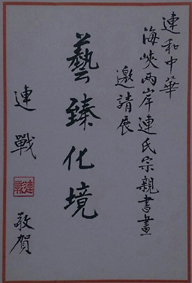 連和中華
海峽兩岸連氏宗親書畫
邀請展
藝臻化境
連戰
敬賀